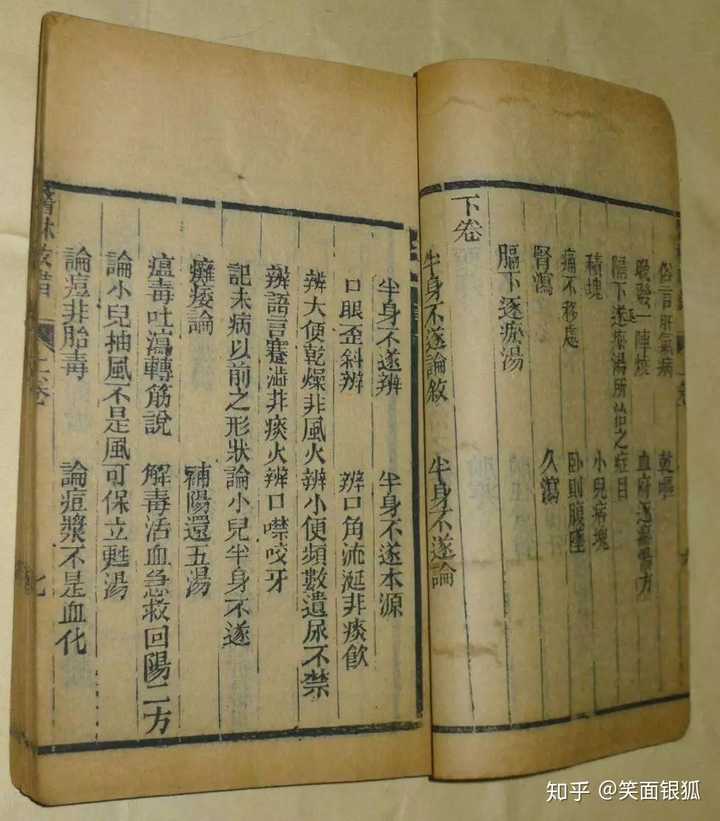 俗言肝氣病 乾嘔
晚發一陣熱 血府逐瘀湯方
膈下逐瘀湯所治之症目
積塊 小兒痞塊
痛不移處 臥則腹墜
腎瀉 久瀉
膈下逐瘀湯
下卷
半身不遂論敘 半身不遂論
半身不遂辨 半身不遂本源
口眼歪斜辨 辨口角流涎非痰飲
辨大便乾燥非風火 辨小便頻數遺尿不禁
辨語言蹇澁非痰火 辨口噤咬牙
記未病以前之形狀 論小兒半身不遂
癱痿論 補陽還五湯
瘟毒吐瀉轉筋說 解毒活血急救回陽二方
論小兒抽風不是風 可保立甦湯
論痘非胎毒 論痘漿不是血化
醫林改錯 上卷 七
知乎 @笑面银狐